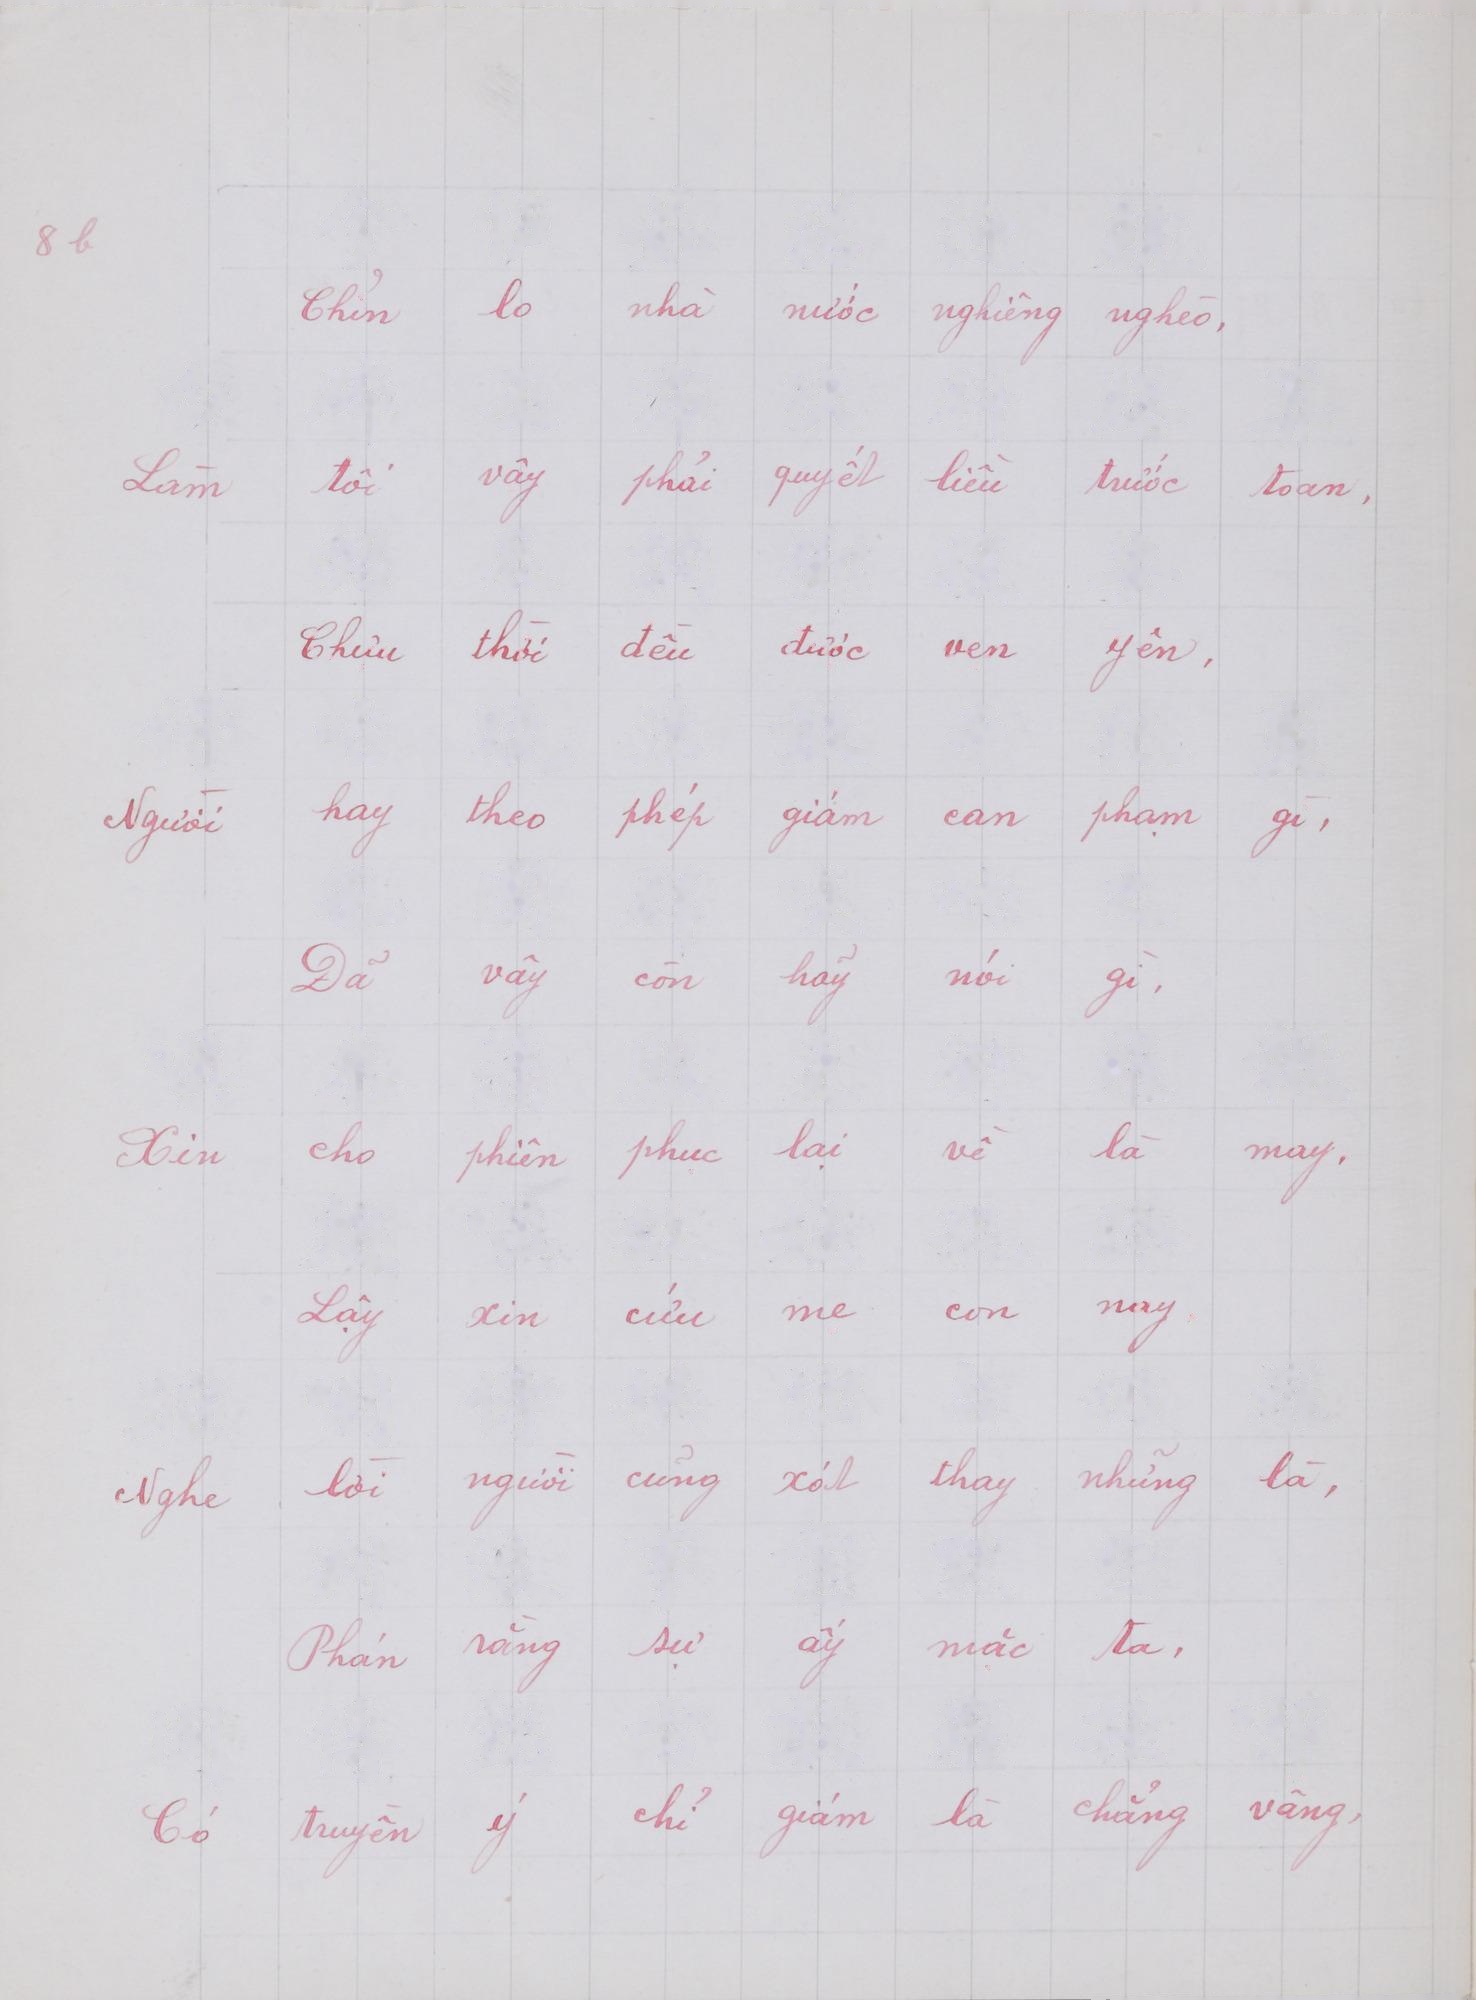 8 b
Chỉn lo nhà nước nghiêng nghèo,
Làm tôi vây phải quyết liều trước toan,
Chìu thời đều được ven yên,
Người hay theo phép giám can phạm gì,
Dã vây còn hãy nói gì,
Xin cho phiên phục lại về là may,
Lậy xin cứu me con nay
Nghe lời người cũng xót thay những là,
Phán rằng sự ấy mặc ta,
Có truyền ý chỉ giám là chẳng vâng,